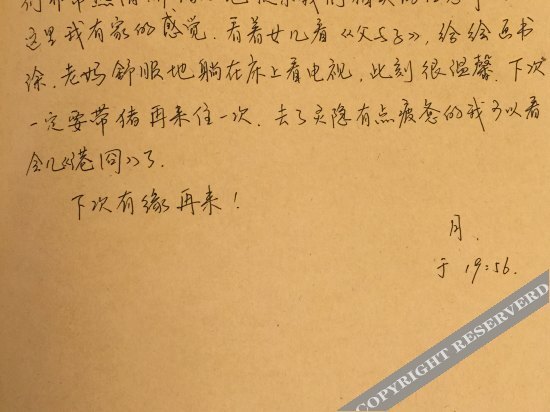 这里我有家的感觉.看着女儿看《父与子》,给绘画书
涂.老妈舒服地躺在床上看电视,此刻很温馨.下次
一定要带猪再来住一次.去了灵隐有点疲惫的我可以看
会儿《港囧》了.
下次有缘再来!
月.
于 19:56.
COPYRIGHT RESERVERD